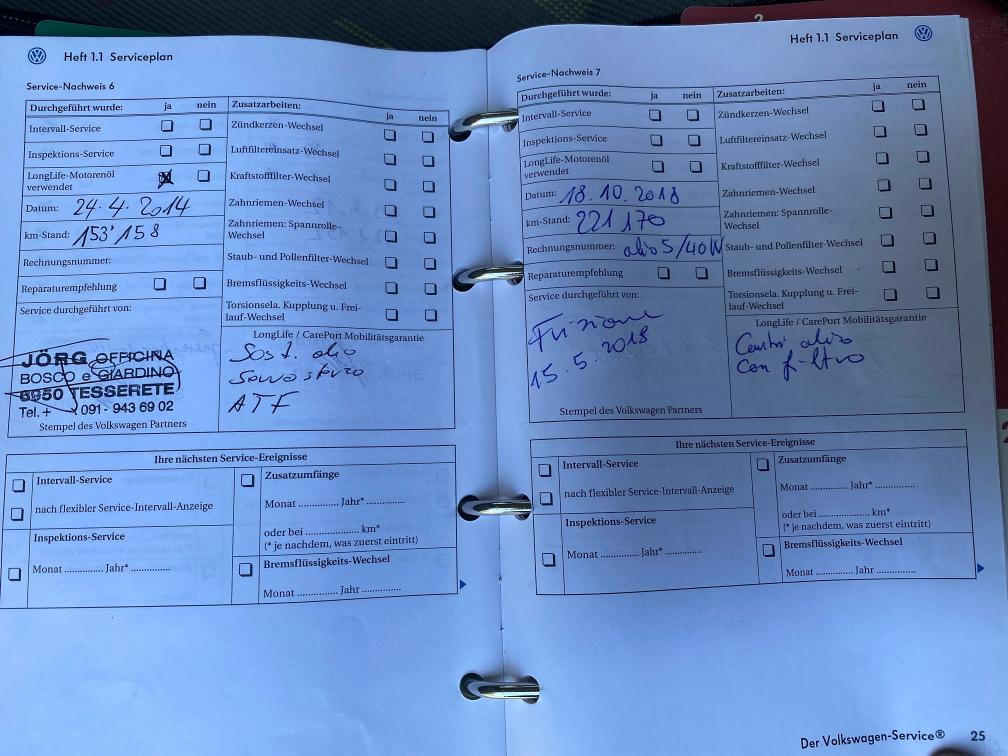 2
Heft 1.1 Serviceplan
Service-Nachweis 6
Durchgeführt wurde: ja nein
Intervall-Service
Inspektions-Service
LongLife-Motorenöl
verwendet
Datum: 24.4.2014
km-Stand: 153'158
Rechnungsnummer:
Reparaturempfehlung
Service durchgeführt von:
JÖRG OFFICINA
BOSCO e GIARDINO
6950 TESSERETE
Tel. + 091- 943 69 02
Stempel des Volkswagen Partners
Zusatzarbeiten: ja nein
Zündkerzen-Wechsel
Luftfiltereinsatz-Wechsel
Kraftstofffilter-Wechsel
Zahnriemen-Wechsel
Zahnriemen: Spannrolle-
Wechsel
Staub- und Pollenfilter-Wechsel
Bremsflüssigkeits-Wechsel
Torsionsela. Kupplung u. Frei-
lauf-Wechsel
LongLife / CarePort Mobilitätsgarantie
Sost. olio
Servosterzo
ATF
Ihre nächsten Service-Ereignisse
Intervall-Service
nach flexibler Service-Intervall-Anzeige
Inspektions-Service
Monat .............. Jahr* ..............
Zusatzumfänge
Monat .............. Jahr* ..............
oder bei ..................... km*
(* je nachdem, was zuerst eintritt)
Bremsflüssigkeits-Wechsel
Monat .............. Jahr ..............
Heft 1.1 Serviceplan
Service-Nachweis 7
Durchgeführt wurde: ja nein
Intervall-Service
Inspektions-Service
LongLife-Motorenöl
verwendet
Datum: 18.10.2018
km-Stand: 221170
Rechnungsnummer: olio 5/40W
Reparaturempfehlung
Service durchgeführt von:
Frizione
15.5.2018
Stempel des Volkswagen Partners
Zusatzarbeiten: ja nein
Zündkerzen-Wechsel
Luftfiltereinsatz-Wechsel
Kraftstofffilter-Wechsel
Zahnriemen-Wechsel
Zahnriemen: Spannrolle-
Wechsel
Staub- und Pollenfilter-Wechsel
Bremsflüssigkeits-Wechsel
Torsionsela. Kupplung u. Frei-
lauf-Wechsel
LongLife / CarePort Mobilitätsgarantie
olio
con filtro
Ihre nächsten Service-Ereignisse
Intervall-Service
nach flexibler Service-Intervall-Anzeige
Inspektions-Service
Monat .............. Jahr* ..............
Zusatzumfänge
Monat .............. Jahr* ..............
oder bei ..................... km*
(* je nachdem, was zuerst eintritt)
Bremsflüssigkeits-Wechsel
Monat .............. Jahr ..............
Der Volkswagen-Service® 25